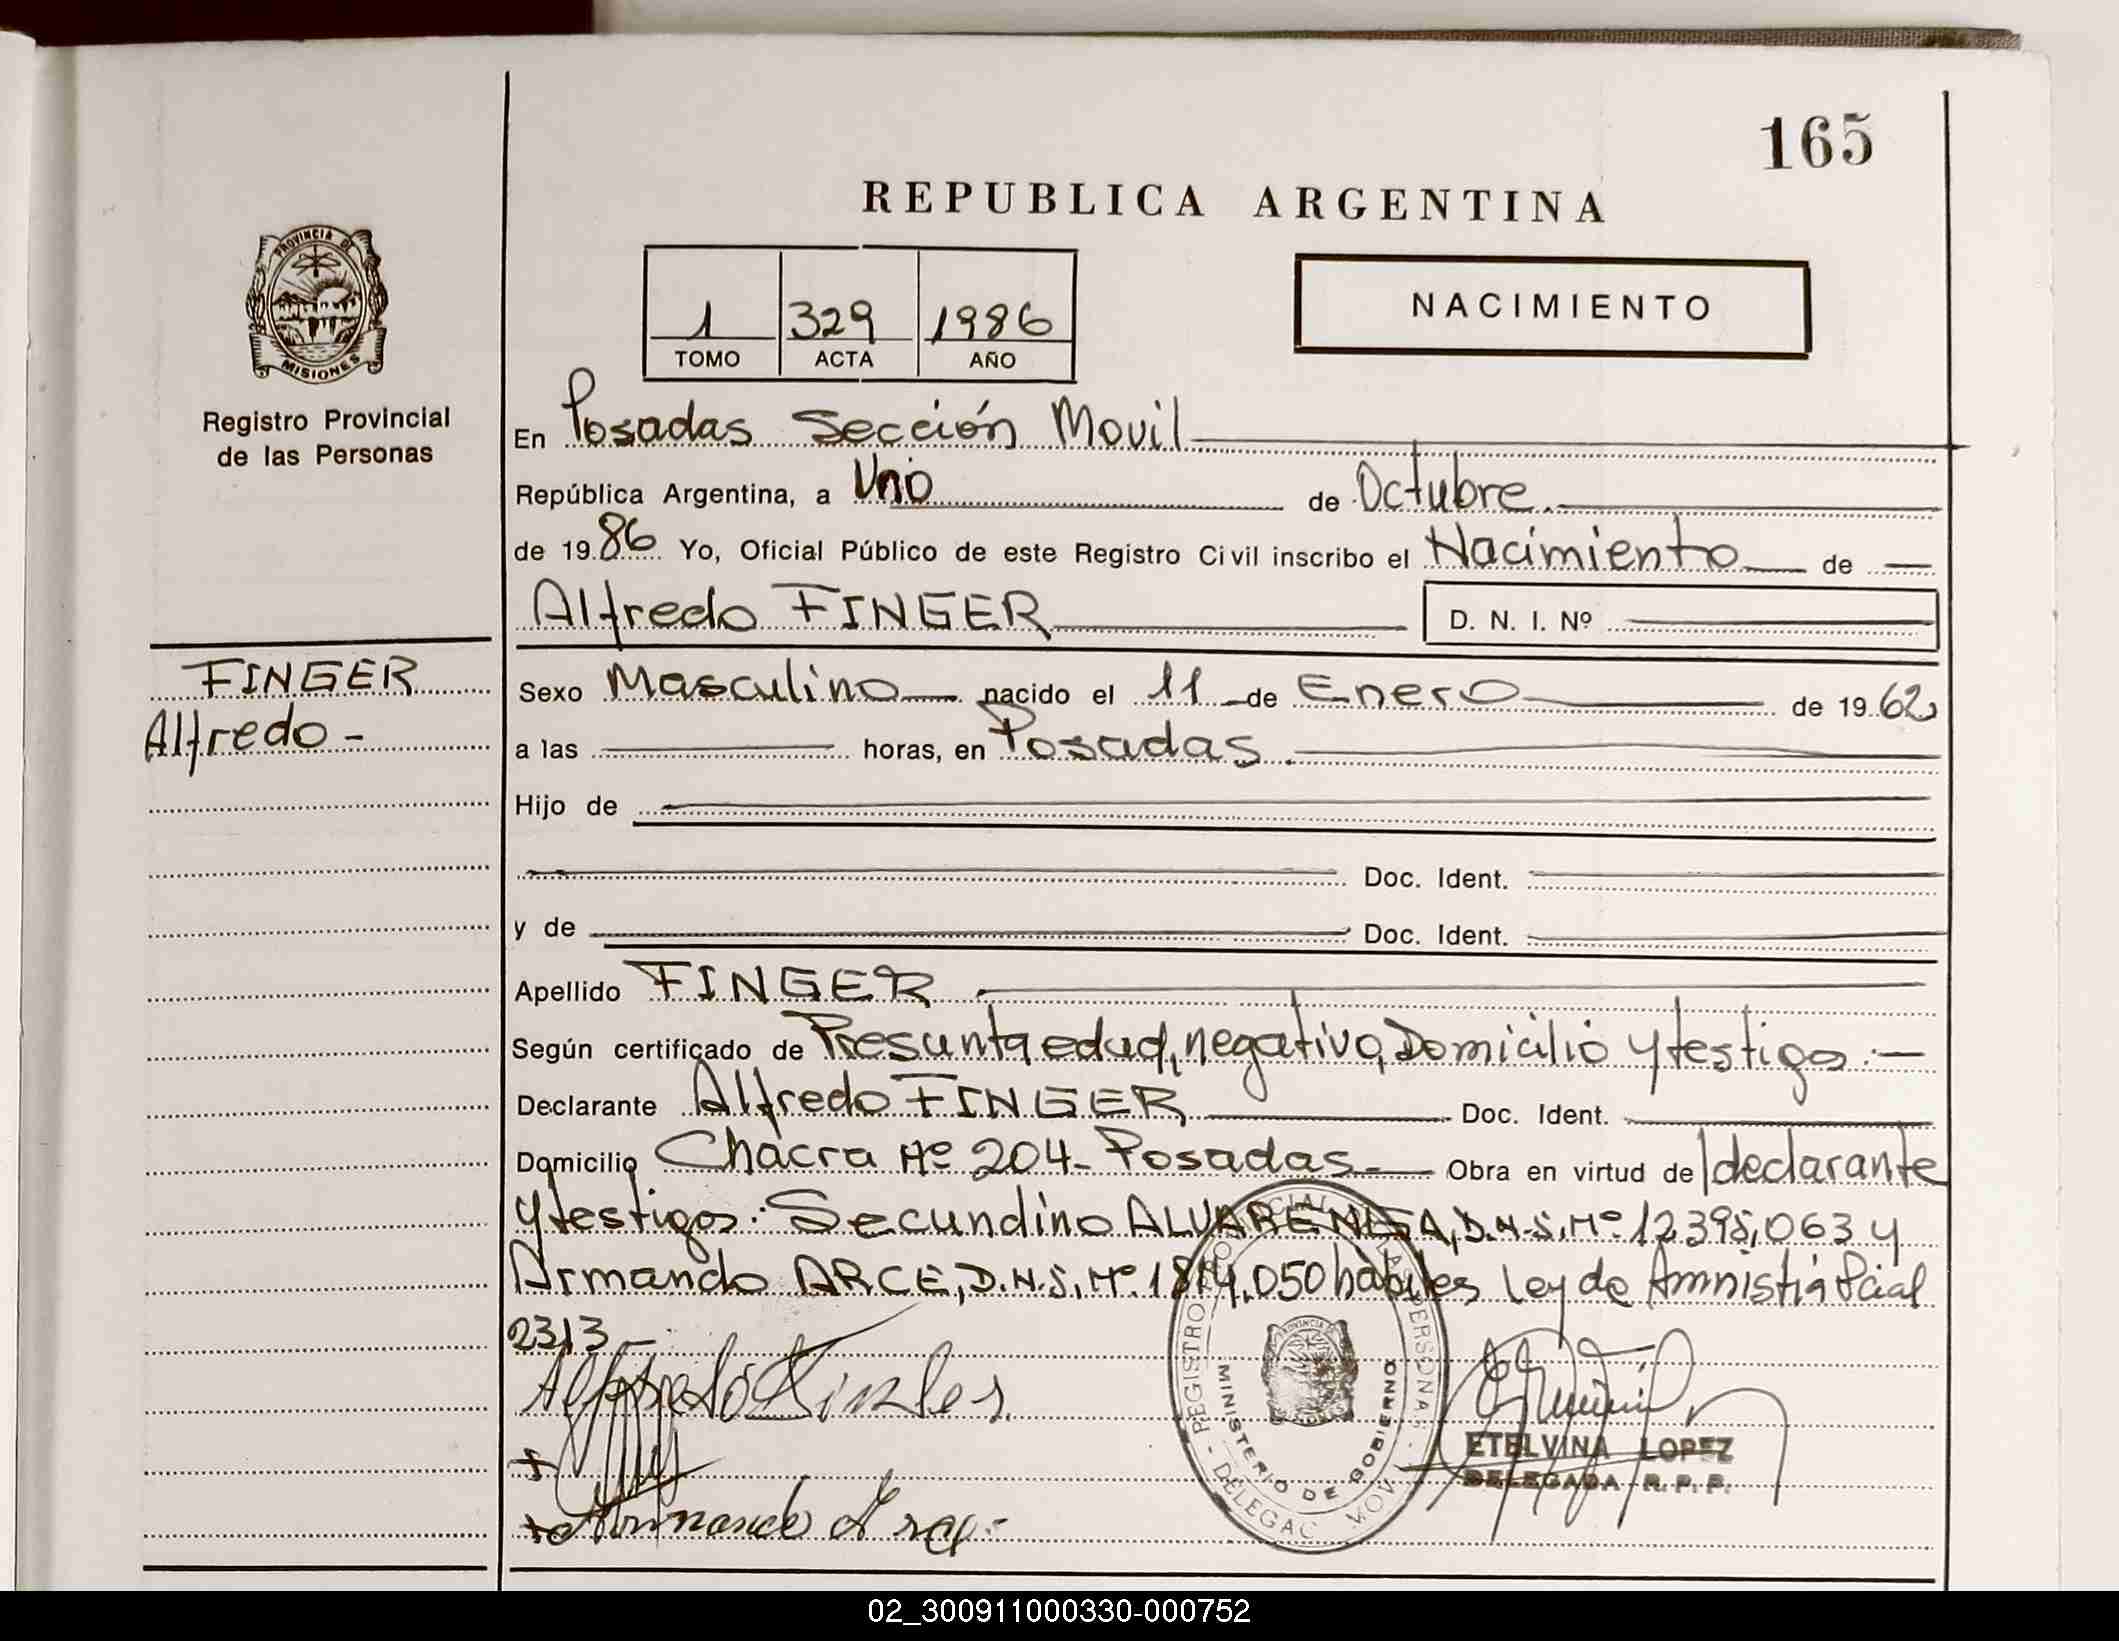 165
REPUBLICA ARGENTINA
PROVINCIA DE
MISIONES
1 329 1986
TOMO ACTA AÑO
NACIMIENTO
Registro Provincial
de las Personas
En Posadas Sección Movil
República Argentina, a Uno de Octubre.
de 1986 Yo, Oficial Público de este Registro Civil inscribo el Nacimiento de
Alfredo FINGER D. N. I. Nº
FINGER
Alfredo -
Sexo Masculino nacido el 11 de Enero de 1962
a las horas, en Posadas.
Hijo de
Doc. Ident.
y de Doc. Ident.
Apellido FINGER
Según certificado de Presunta edad, negativo, Domicilio y testigo.-
Declarante Alfredo FINGER Doc. Ident.
Domicilio Chacra Nº 204- Posadas.- Obra en virtud de declarante
y testigos: Secundino ALVARENGA, D.N.I. Nº 12.395,063 y
Armando ARCE, D.N.I. Nº. 050 hábiles Ley de Amnistía
2313-
REGISTRO PROVINCIAL DE LAS PERSONAS
MINISTERIO DE GOBIERNO
DELEGAC MOV
PROVINCIA DE
ETELVINA LOPEZ
DELEGADA R. P. P.
Armando
02_300911000330-000752